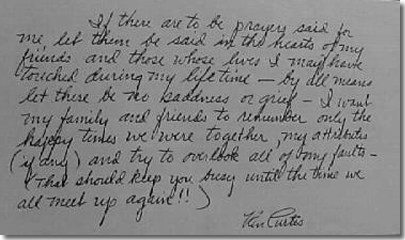 If there are to be prayers said for
me, let them be said in the hearts of my
friends and those whose lives I may have
touched during my life time — by all means
let there be no sadness or grief — I want
my family and friends to remember only the
happy times we were together, my attributes
(if any) and try to overlook all of my faults —
(That should keep you busy until the time we
all meet up again!!)
Ken Curtis